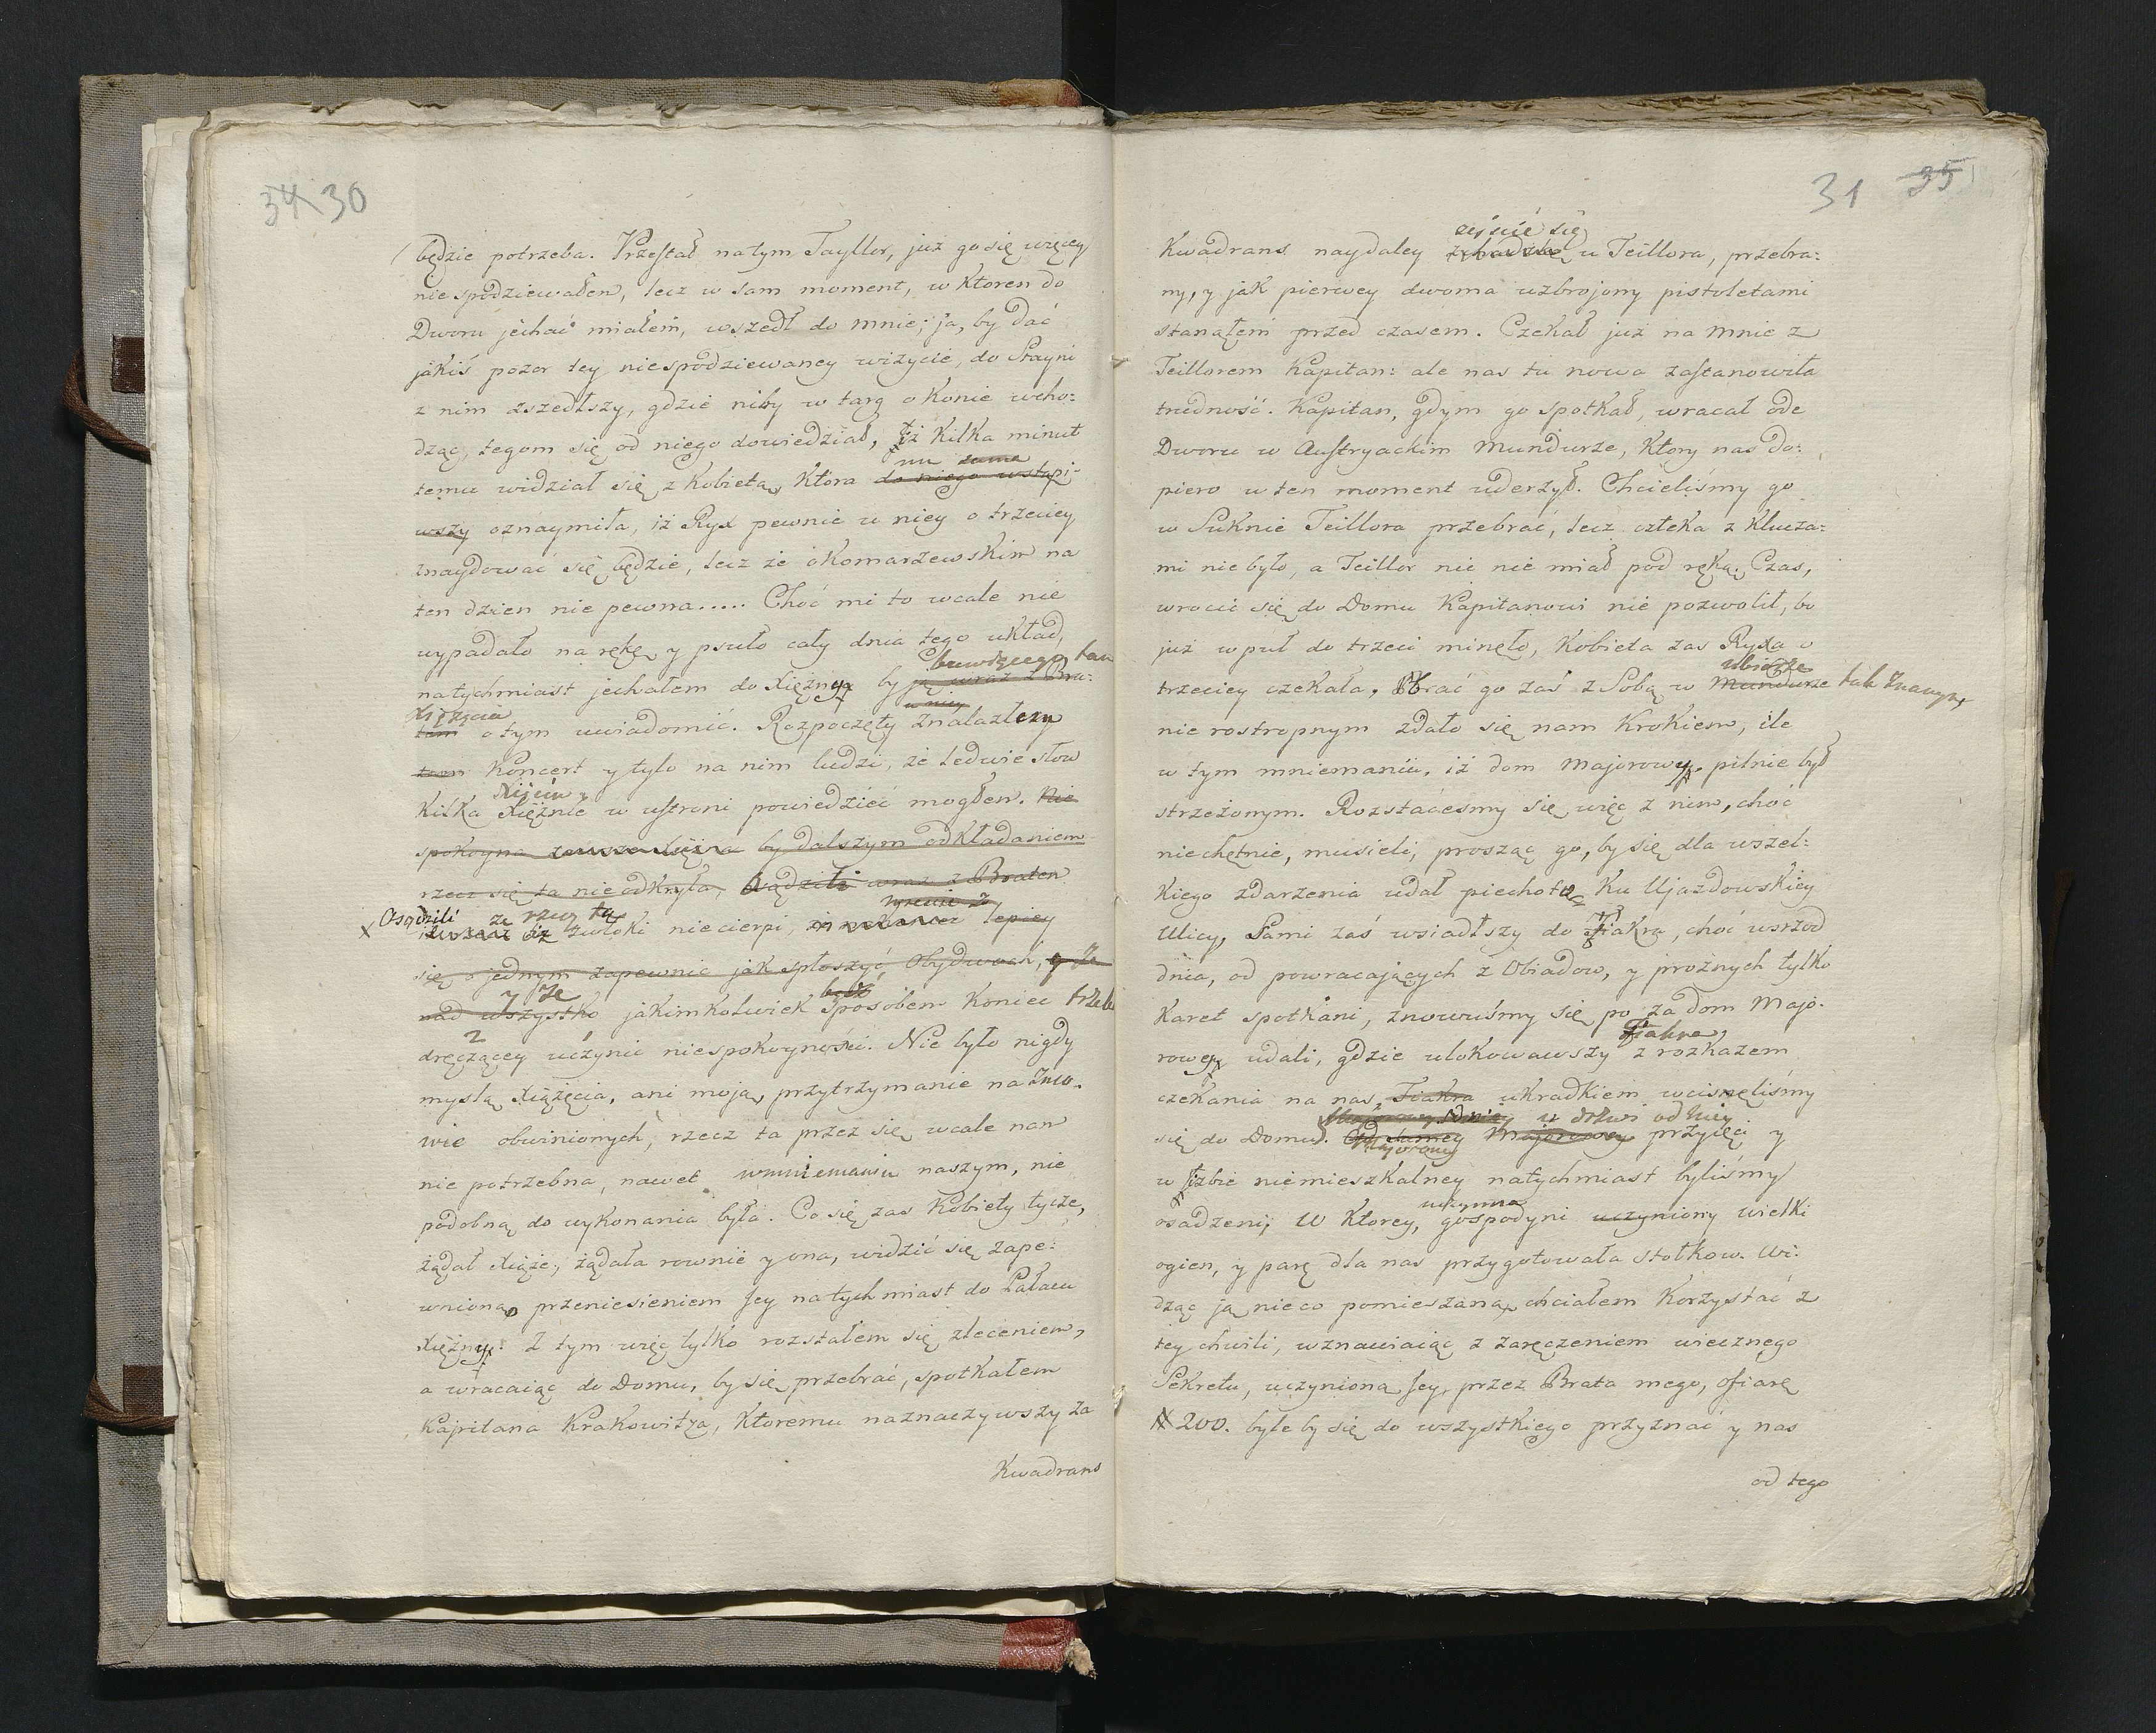 34 30
będzie potrzeba. Przestał natym Tayllor, już go się więcey
nie spodziewałem, lecz w sam moment, w ktoren do
Dworu jechać miałem, wszedł do mnie; ja, by dać
jakiś pozor tey niespodziewaney wizycie, do Stayni
z nim zszedłszy, gdzie niby w targ o konie wcho:
dząc, tegom się od niego dowiedział, iż kilka minut
mu sama
temu widział się z kobietą, ktora do niego wstąpi-
wszy oznaymiła, iż Ryx pewnie u niey o trzeciey
znaydować się będzie, lecz że o Komarzewskim na
ten dzien nie pewna..... Choć mi to wcale nie
wypadało na rękę y psuło cały dnia tego układ,
bawiącego tam
natychmiast jechałem do Xiężny by ją wraz z Bra:
Xiążęcia w niey
tem o tym uwiadomić. Rozpoczęty znalazłszy
tam koncert y tyle na nim ludzi, że ledwie słow
Xięciu y
kilka Xiężnie w ustroni powiedzieć mogłem. Nie
spokoyna zawsze Xiężna by dalszym odkładaniem
rzecz się ta nie odkryła, sądziła wraz z Bratem
x Osądzili że rzecz ta
iż zwłoki nie cierpi, lepiey
się o jednym zapewnić jak spłoszyć obydwoch, y że
y że być
nad wszystko jakimkolwiek sposobem koniec trzeba
z
dręczącey uczynić niespokoyności. Nie było nigdy
myslą Xiążęcia, ani moją, przytrzymanie na zmo.
wie obwinionych, rzecz ta przez się wcale nam
nie potrzebna, nawet w mniemaniu naszym, nie
podobną do wykonania była. Co się zas kobiety tycze,
żądał Xiąże, żądała rownie y ona, widzić się zape:
wnioną przeniesieniem Jey natychmiast do Pałacu
Xiężny: Z tym więc tylko rozstałem się zleceniem,
a wracaiąc do Domu, by się przebrać, spotkałem
Kapitana Krakowitza, ktoremu naznaczywszy za
Kwadrans
31 35
zejście się
Kwadrans naydaley schadzkę u Teillora, przebra:
ny, y jak pierwey dwoma uzbrojony pistoletami
stanąłem przed czasem. Czekał już na mnie z
Teillorem Kapitan: ale nas tu nowa zastanowiła
trudność. Kapitan, gdym go spotkał, wracał ode
Dworu w Austryackim Mundurze, ktory nas do:
piero w ten moment uderzył. Chcieliśmy go
w Suknie Teillora przebrać, lecz człeka z klucza:
mi nie było, a Teillor nic nie miał pod ręką. Czas,
wrocić się do Domu Kapitanowi nie pozwolił, bo
już wpuł do trzeci mineło, kobieta zas Ryxa o
ubiorze
trzeciey czekała. Brać go zaś z Sobą w Mundurze tak znanym
nie rostropnym zdało się nam krokiem, ile
w tym mniemaniu, iż dom Majorowy pilnie był
strzeżonym. Rozstaćesmy się więc z nim, choć
niechętnie, musieli, prosząc go, by się dla wszel:
kiego zdarzenia udał piechotą ku Ujazdowskiey
Ulicy, Sami zaś wsiadłszy do Fiakra, choć wsrzod
dnia, od powracających z Obiadow, y prożnych tylko
karet spotkani, znowuśmy się po za dom Majo-
Fiakra,
rowey udali, gdzie ulokowawszy z rozkazem
czekania na nas, Fiakra ukradkiem wcisneliśmy
u drzwi od niey
się do Domu. Od samey Majorowey przyięci y
Majorowey
w Izbie niemieszkalney natychmiast byliśmy
uczynna
osadzeni, w ktorey, gospodyni uczyniony wielki
ogien, y parę dla nas przygotowała stołkow. Wi:
dząc ją nieco pomieszaną, chciałem korzystać z
tey chwili, wznawiaiąc z zaręczeniem wiecznego
Sekretu, uczynioną Jey przez Brata mego, ofiarę
# 200. byle by się do wszystkiego przyznać y nas
od tego